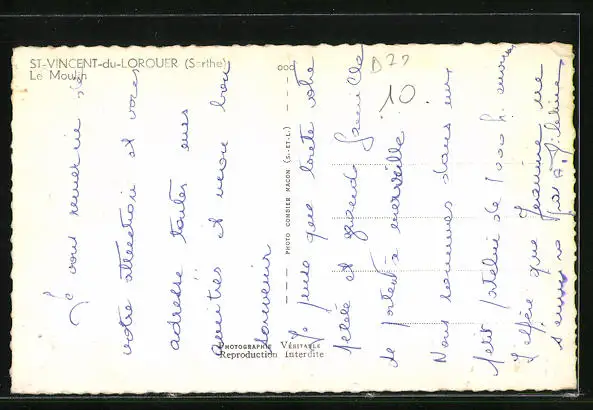 ST-VINCENT-du-LOROUER (Sarthe)
Le Moulin
D 27
10.
PHOTO COMBIER MACON (S.-ET-L.)
PHOTOGRAPHIE VÉRITABLE
Reproduction Interdite
Je vous remercie de
votre attention et vous
adresse toutes mes
amitiés et mon bon
souvenir
Je pense que toute votre
et grande famille
se porte à merveille
Nous sommes dans un
petit patelin de 1000 h.
J'espère que Jeanine ne